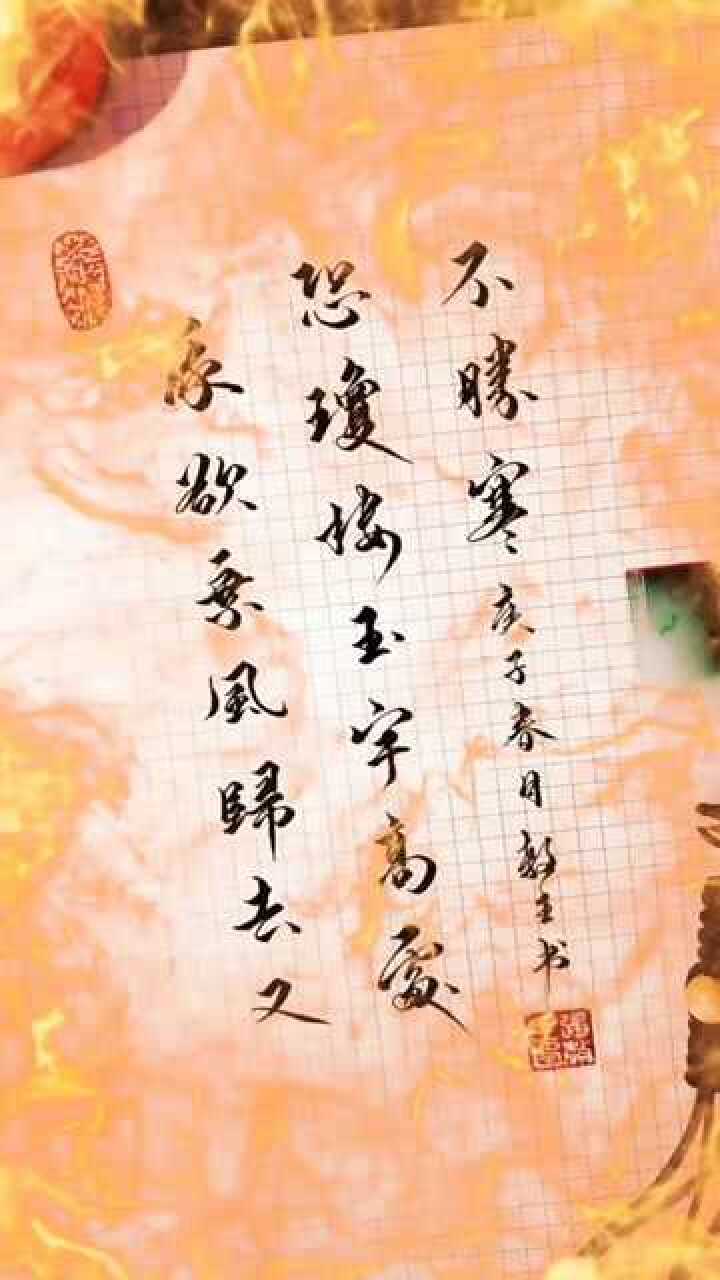 我欲乘風歸去又
恐瓊樓玉宇高處
不勝寒 庚子春月书